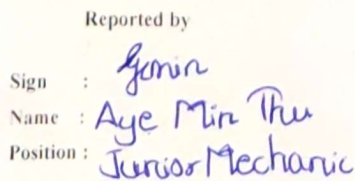 Reported by
Sign :
Name : Aye Min Thu
Position : Junior Mechanic